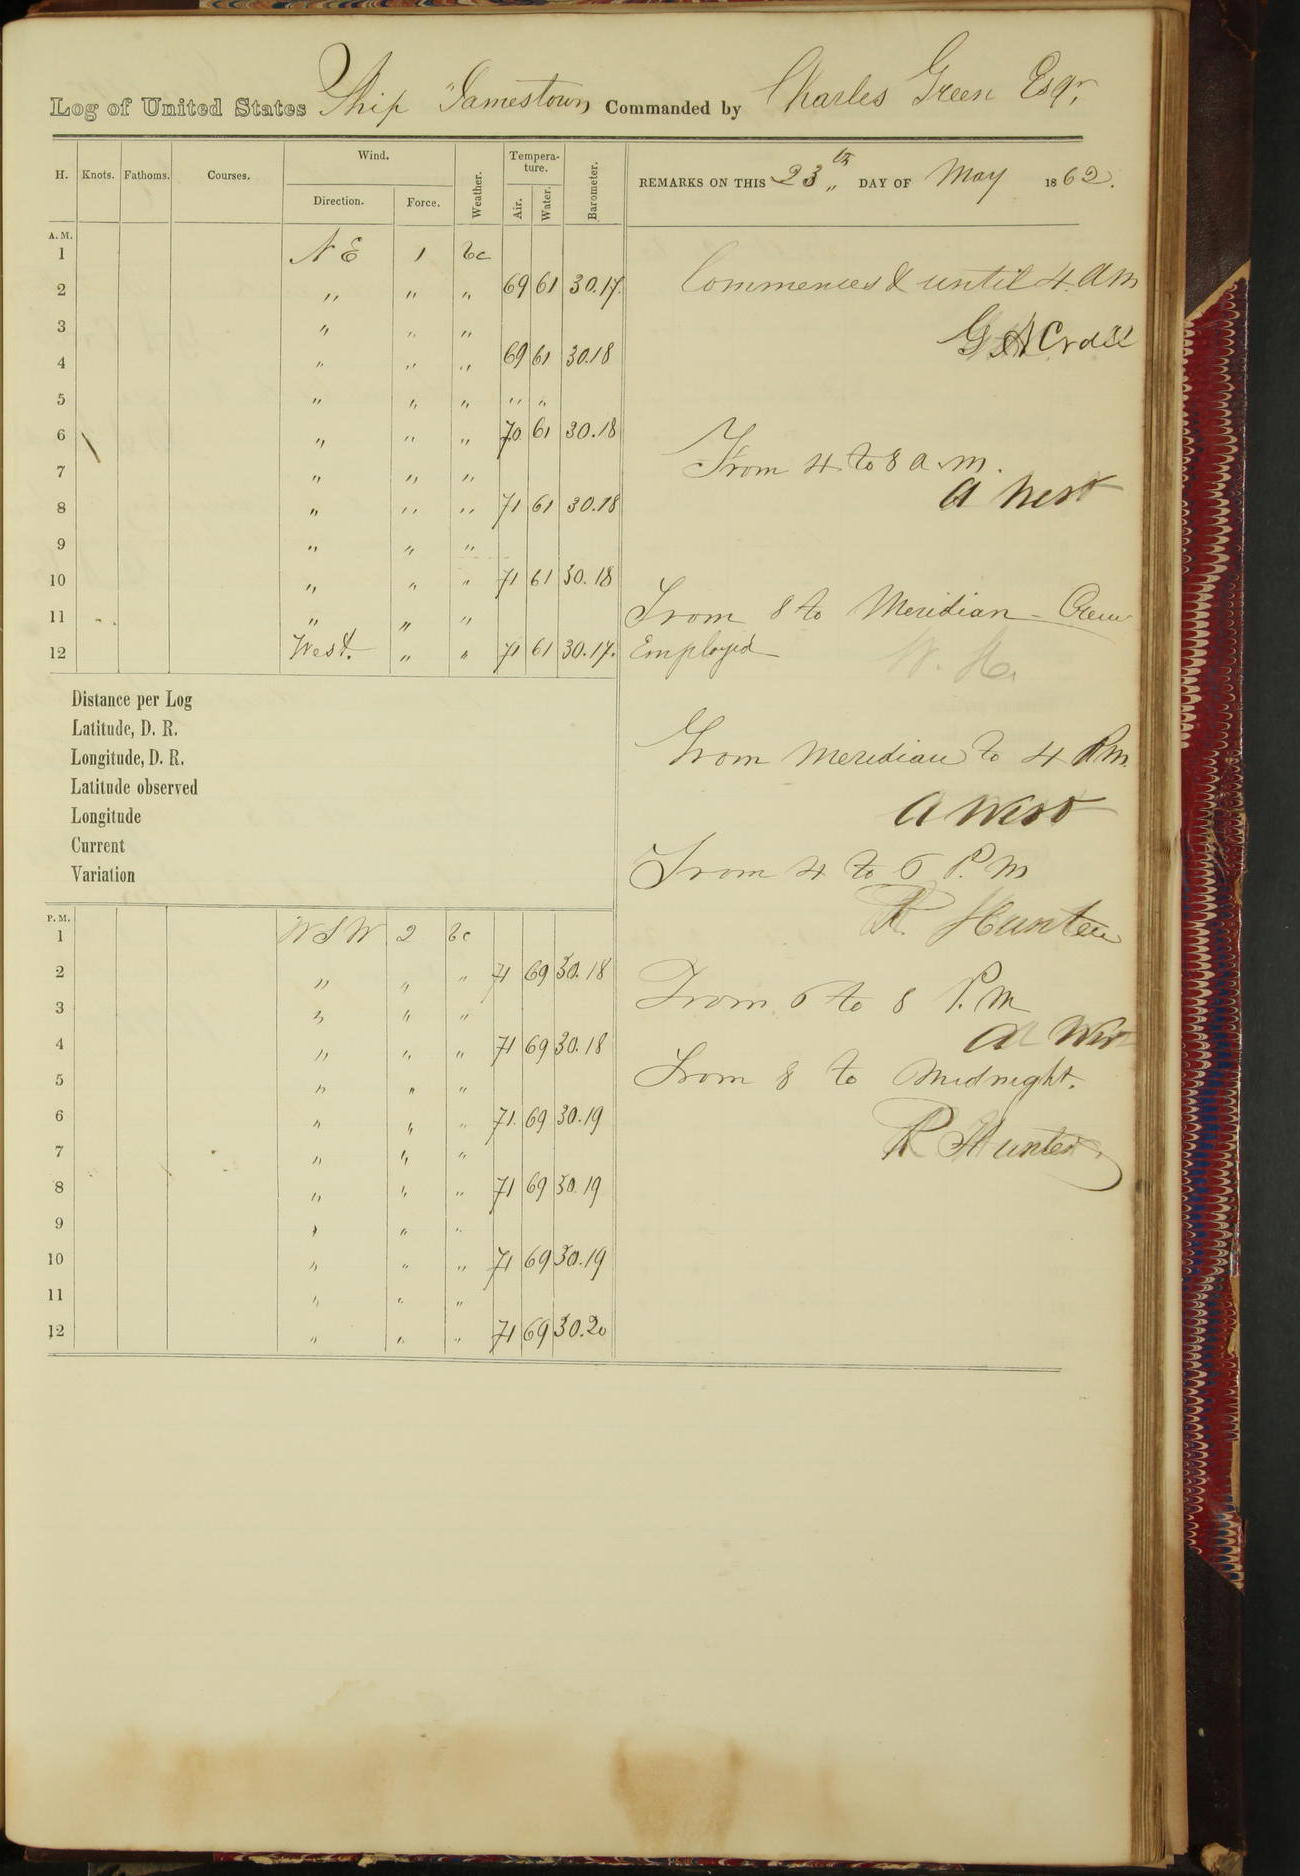 Log of United States Ship Jamestown Commanded by Charles Green Esqr.
H. Knots. Fathoms. Courses. Wind. Direction. Force. Weather. Tempera-ture. Air. Water. Barometer. REMARKS ON THIS 23th „ DAY OF May 1862.
A. M.
1 N E 1 bc
2 „ „ „ 69 61 30.17.
3 „ „ „
4 „ „ „ 69 61 30.18
5 „ „ „ „ „
6 „ „ „ 70 61 30.18
7 „ „ „
8 „ „ „ 71 61 30.18
9 „ „ „
10 „ „ „ 71 61 30.18
11 „ „ „
12 West. „ „ 71 61 30.17.
Commences & until 4. am
From 4 to 8 a.m.
A West
From 8 to Meridian - Crew
Employed
Distance per Log
Latitude, D. R.
Longitude, D. R.
Latitude observed
Longitude
Current
Variation
From Meridian to 4 Pm.
A West
From 4 to 6 P. M
R. Hunter
From 6 to 8 P. M
A West
From 8 to Midnight.
R Hunter
P. M.
1 W S W 2 bc
2 „ „ „ 71 69 30.18
3 „ „ „
4 „ „ „ 71 69 30.18
5 „ „ „
6 „ „ „ 71. 69 30.19
7 „ „ „
8 „ „ „ 71 69 30.19
9 „ „ „
10 „ „ „ 71 69 30.19
11 „ „ „
12 „ „ „ 71 69 30.20